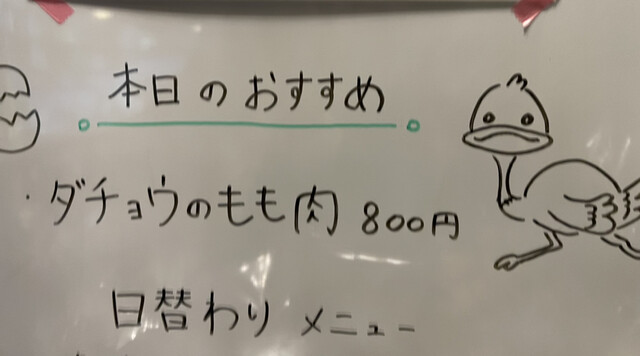 本日のおすすめ
・ダチョウのもも肉 800円
日替わりメニュー